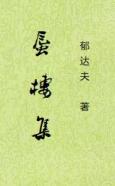 蜃樓集
郁达夫 著